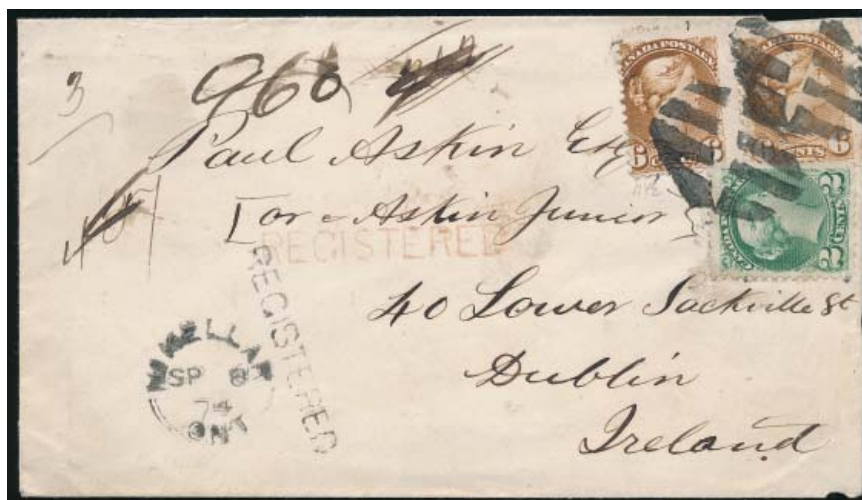 3
960
Paul Askin Esq
[or - Askin Junior
REGISTERED
REGISTERED
40 Lower Sackville St
Dublin
Ireland
McKELLAR
SP 8
74
ONT
CANADA POSTAGE
6 6
CENTS 6
2 CENTS 2